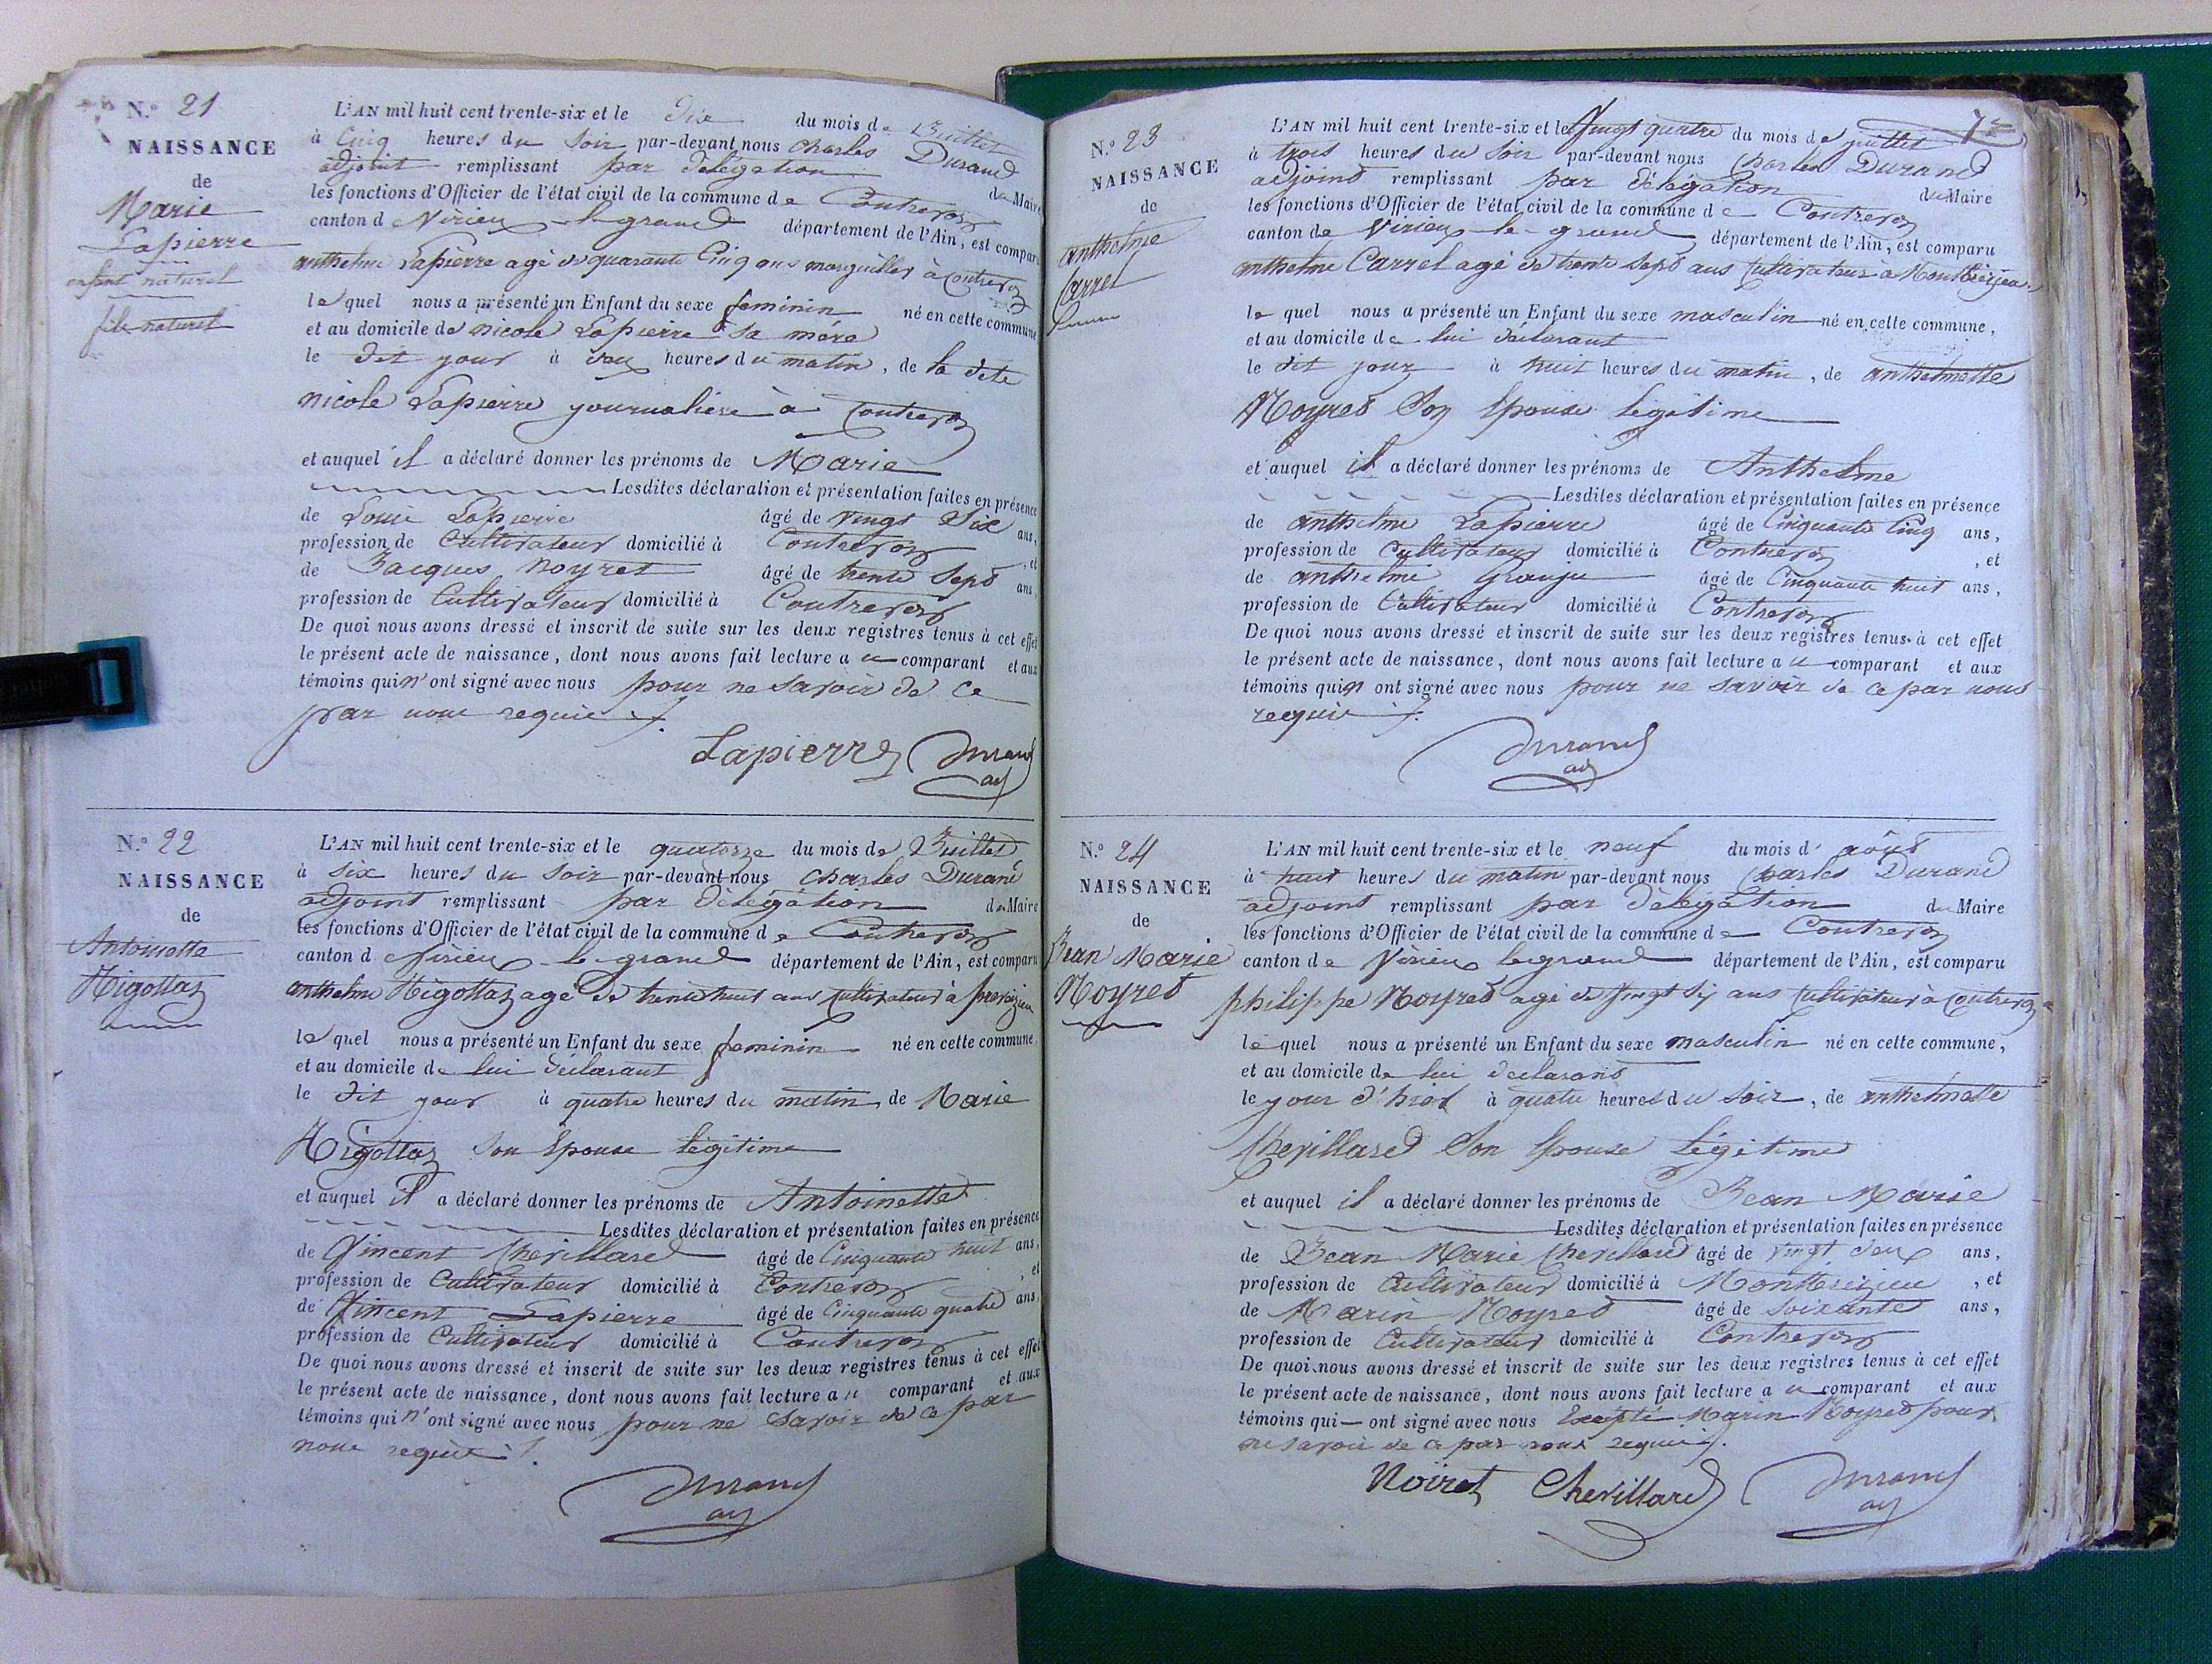 N.° 21
NAISSANCE
de
Marie
Lapierre
enfant naturel
fille naturel
L'AN mil huit cent trente-six et le Dix du mois de Juillet
à Cinq heures du Soir par-devant nous Charles Durand
adjoint remplissant par délégation du Maire
les fonctions d'Officier de l'état civil de la commune de Contrevoz
canton de Virieu le grand département de l'Ain, est comparu
anthelme Lapierre agé de quarante Cinq ans marguiller à Contrevoz
lequel nous a présenté un Enfant du sexe feminin né en cette commune
et au domicile de nicole Lapierre sa mére
le dit jour à deux heures du matin, de la dite
nicole Lapierre journalière à Contrevoz
et auquel il a déclaré donner les prénoms de Marie
Lesdites déclaration et présentation faites en présence
de Louis Lapierre âgé de vingt Six ans,
profession de Cultivateur domicilié à Contrevoz, et
de Jacques Noyret âgé de trente Sept ans,
profession de Cultivateur domicilié à Contrevoz
De quoi nous avons dressé et inscrit de suite sur les deux registres tenus à cet effet
le présent acte de naissance, dont nous avons fait lecture au comparant et aux
témoins qui n'ont signé avec nous pour ne savoir de ce
par nous requis
Lapierre Durand
adj
N.° 22
NAISSANCE
de
Antoinette
Higottaz
L'AN mil huit cent trente-six et le quatorze du mois de Juillet
à six heures du Soir par-devant nous Charles Durand
adjoint remplissant par délégation du Maire
les fonctions d'Officier de l'état civil de la commune de Contrevoz
canton de Virieu le grand département de l'Ain, est comparu
anthelme Higottaz agé de trente huit ans Cultivateur à preveizieu
lequel nous a présenté un Enfant du sexe feminin né en cette commune,
et au domicile de lui déclarant
le dit jour à quatre heures du matin, de Marie
Higottaz Son Epouse légitime
et auquel il a déclaré donner les prénoms de Antoinette
Lesdites déclaration et présentation faites en présence
de Vincent Chevillard âgé de Cinquante huit ans,
profession de Cultivateur domicilié à Contrevoz, et
de Vincent Lapierre âgé de Cinquante quatre ans,
profession de Cultivateur domicilié à Contrevoz
De quoi nous avons dressé et inscrit de suite sur les deux registres tenus à cet effet
le présent acte de naissance, dont nous avons fait lecture au comparant et aux
témoins qui n'ont signé avec nous pour ne savoir de ce par
nous requis
Durand
adj
7
N.° 23
NAISSANCE
de
anthelme
Carrel
L'AN mil huit cent trente-six et le Vingt quatre du mois de juillet
à trois heures du Soir par-devant nous Charles Durand
adjoint remplissant par délégation du Maire
les fonctions d'Officier de l'état civil de la commune de Contrevoz
canton de Virieu le grand département de l'Ain, est comparu
anthelme Carrel agé de trente Sept ans Cultivateur à Montbreizieu
lequel nous a présenté un Enfant du sexe masculin né en cette commune,
et au domicile de lui déclarant
le dit jour à huit heures du matin, de anthelmette
Noyret Son Epouse légitime
et auquel il a déclaré donner les prénoms de Anthelme
Lesdites déclaration et présentation faites en présence
de anthelme Lapierre âgé de Cinquante Cinq ans,
profession de Cultivateur domicilié à Contrevoz, et
de anthelme Granju âgé de Cinquante huit ans,
profession de Cultivateur domicilié à Contrevoz
De quoi nous avons dressé et inscrit de suite sur les deux registres tenus à cet effet
le présent acte de naissance, dont nous avons fait lecture au comparant et aux
témoins qui n ont signé avec nous pour ne savoir de ce par nous
requis
Durand
adj
N.° 24
NAISSANCE
de
Jean Marie
Noyret
L'AN mil huit cent trente-six et le neuf du mois d' août
à huit heures du matin par-devant nous Charles Durand
adjoint remplissant par délégation du Maire
les fonctions d'Officier de l'état civil de la commune de Contrevoz
canton de Virieu le grand département de l'Ain, est comparu
philippe Noyret agé de vingt Six ans Cultivateur à Contrevoz
lequel nous a présenté un Enfant du sexe masculin né en cette commune,
et au domicile de lui declarant
le jour d'hier à quatre heures du Soir, de anthelmette
Chevillard Son Epouse légitime
et auquel il a déclaré donner les prénoms de Jean Marie
Lesdites déclaration et présentation faites en présence
de Jean Marie Chevillard âgé de vingt deux ans,
profession de Cultivateur domicilié à Montbreizieu, et
de Marin Noyret âgé de soixante ans,
profession de Cultivateur domicilié à Contrevoz
De quoi nous avons dressé et inscrit de suite sur les deux registres tenus à cet effet
le présent acte de naissance, dont nous avons fait lecture au comparant et aux
témoins qui — ont signé avec nous Excepté Marin Noyret pour
ne savoir de ce par nous requis
Noiret Chevillard Durand
adj